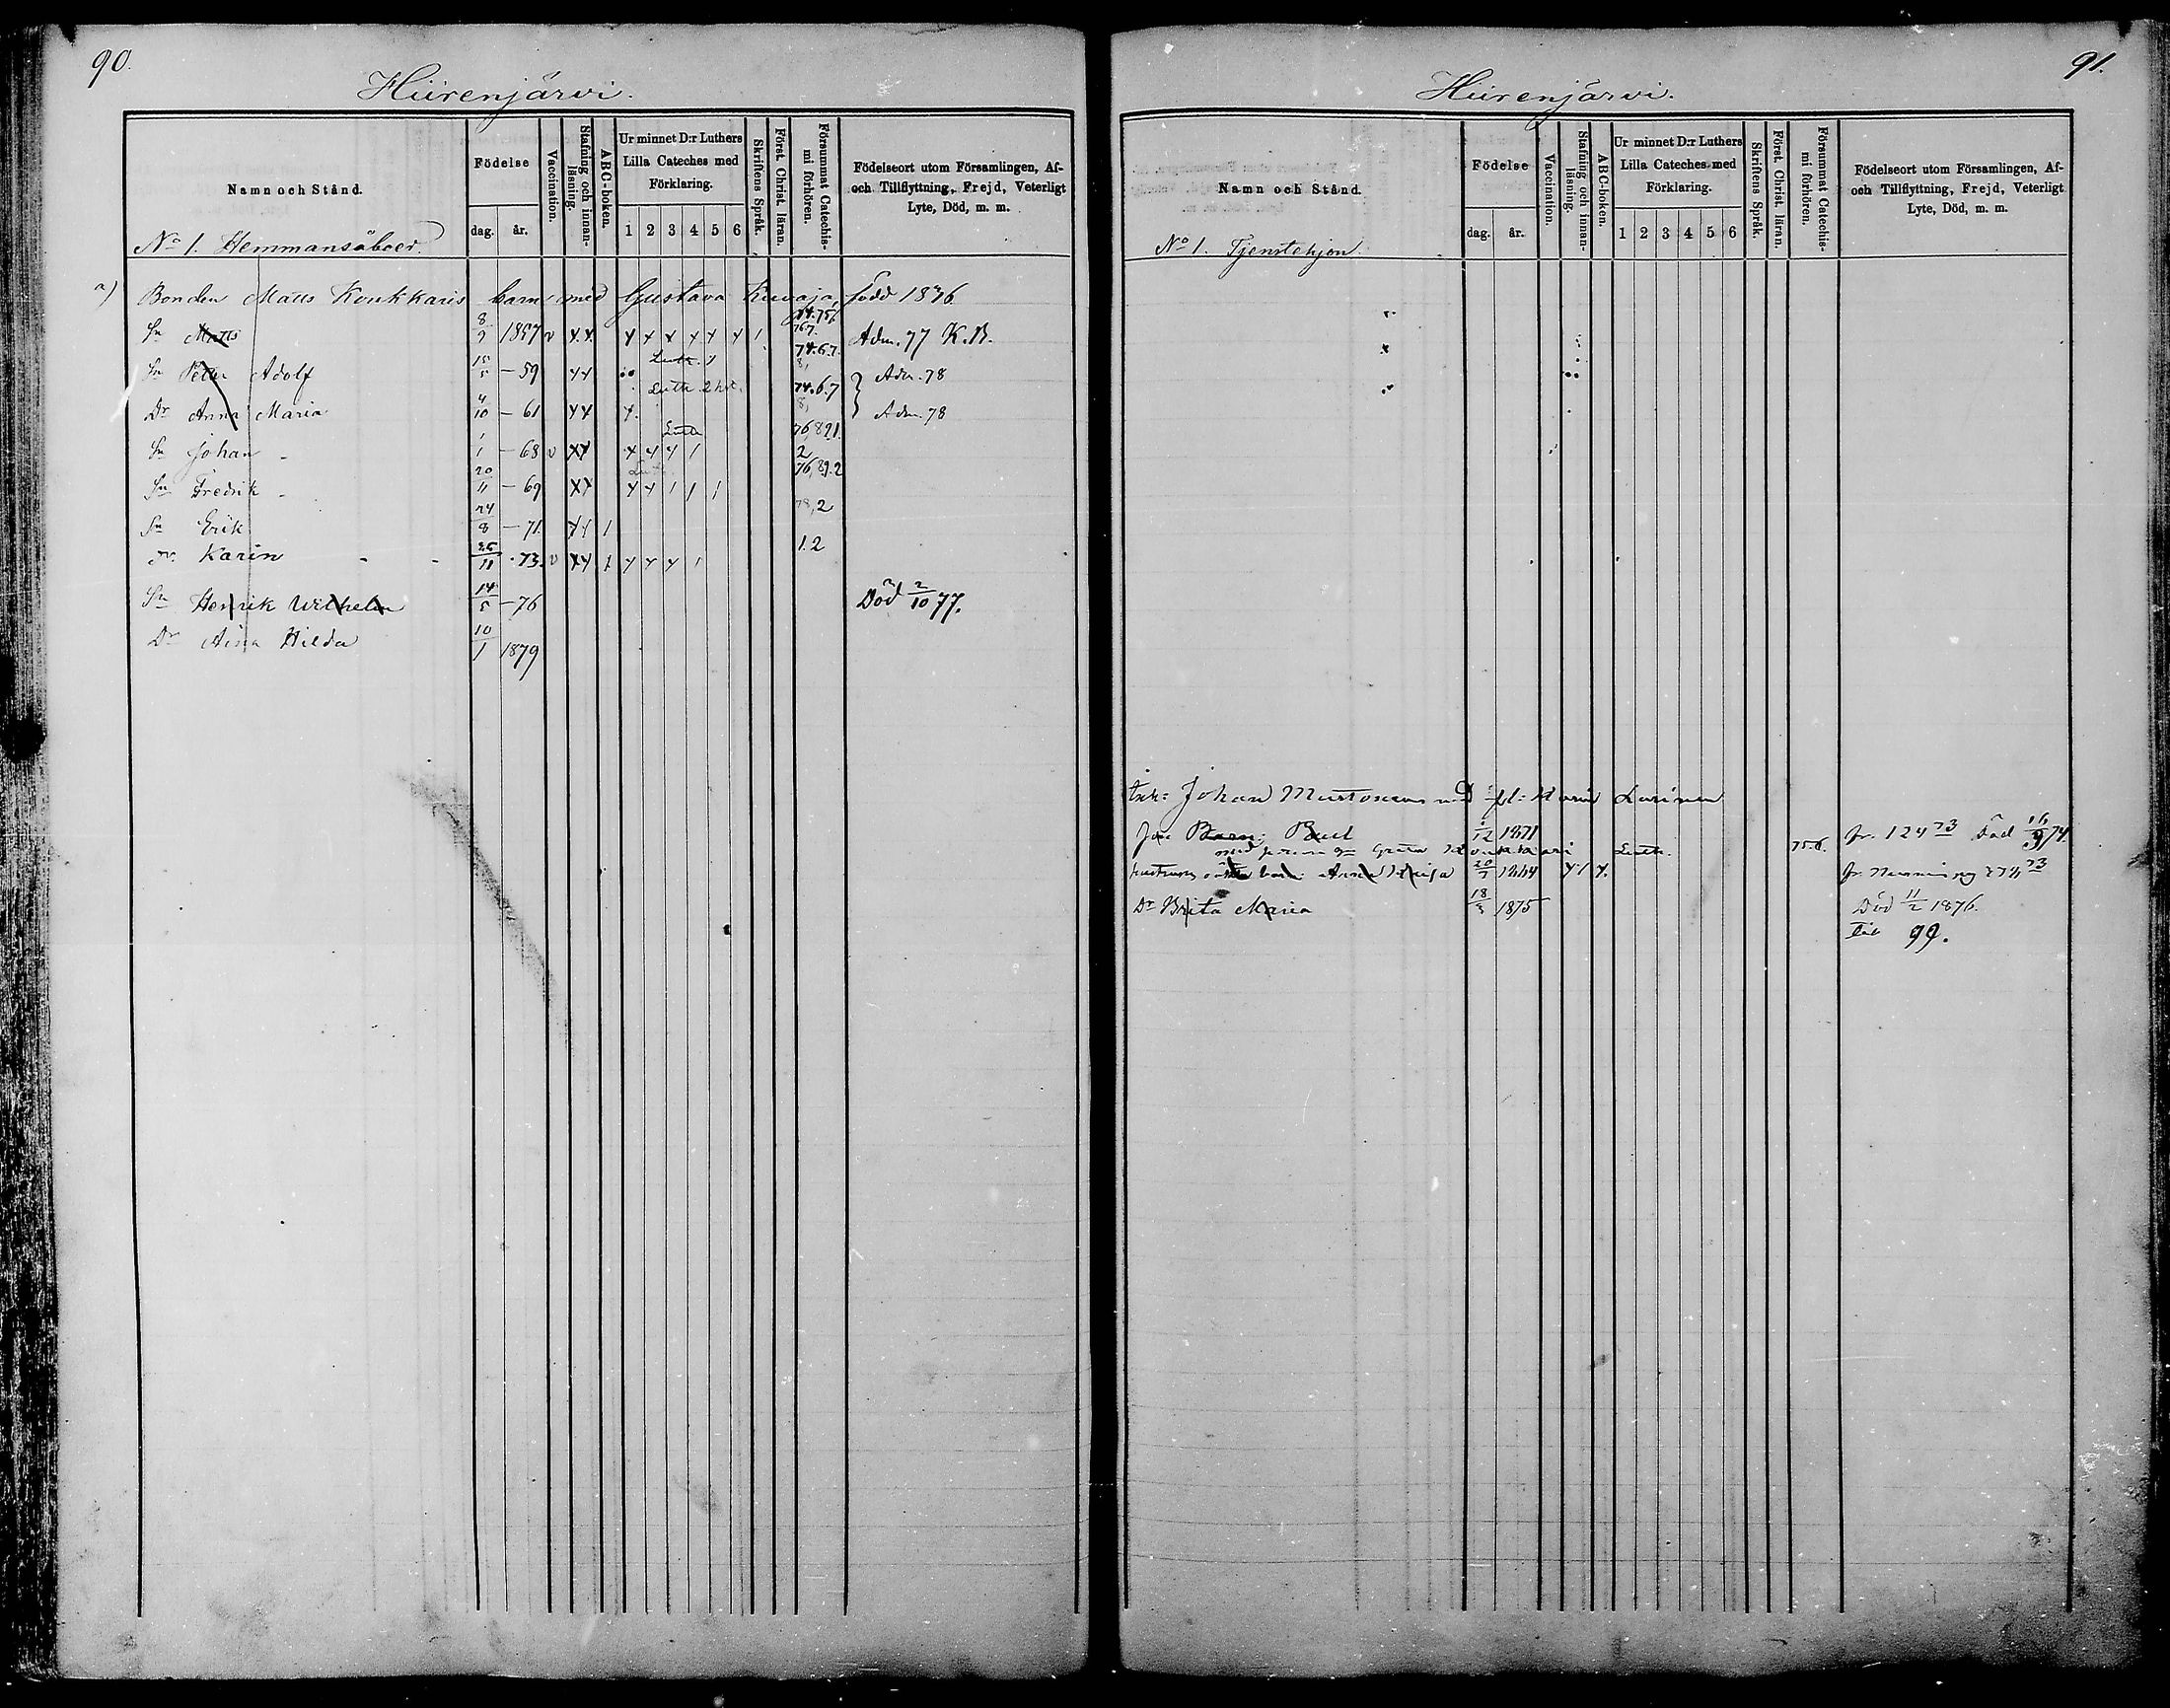 90.
Hiirenjärvi.
Namn och Stånd.
Födelse
dag. år.
Vaccination.
Stafning och innan-
läsning.
ABC-boken.
Ur minnet D:r Luthers
Lilla Cateches med
Förklaring.
1 2 3 4 5 6
Skriftens Språk.
Först. Christ. läran.
Försummat Catechis-
mi förhören.
Födelseort utom Församlingen, Af-
och Tillflyttning, Frejd, Veterligt
Lyte, Död, m. m.
No 1. Hemmansåboer.
a) Bonden Matts Koukkaris barn med Gustava född 1836
Sn Matts 8/9 1857 v x x x x x x x x 1 Adm. 77 K.B.
Sn Peter Adolf 15/5 — 59 x x Luth. 74.6.7. Adm. 78
Dr Anna Maria 4/10 — 61 x x x. Luth. 74.6.7 8, Adm. 78
Sn Johan 1/1 — 68 v x x x x x 1 Luth 76,821. 2
Sn Fredrik 20/11 — 69 x x x x 1 1 1 Luth. 76,81.2
Sn Erik 24/8 — 71. x x 1 78,2
Dr. Karin 25/11 . 73. v x x 1 x x x 1 1.2
Sn Henrik Wilhelm 14/5 — 76 Död 2/10 77.
Dr Aina Hilda 10/1 1879
91.
Hiirenjärvi.
Namn och Stånd.
Födelse
dag. år.
Vaccination.
Stafning och innan-
läsning.
ABC-boken.
Ur minnet D:r Luthers
Lilla Cateches med
Förklaring.
1 2 3 4 5 6
Skriftens Språk.
Först. Christ. läran.
Försummat Catechis-
mi förhören.
Födelseort utom Församlingen, Af-
och Tillflyttning, Frejd, Veterligt
Lyte, Död, m. m.
No 1. Tjenstehjon.
Johan Mustonens
Barn: 1871 fr. 124 73 Död 16/9 74
Greta Luth. 75.6.
Anna 20/7 1864 fr. 73
Dr Brita Maria 18/3 1875 Död 11/2 1876.
99.